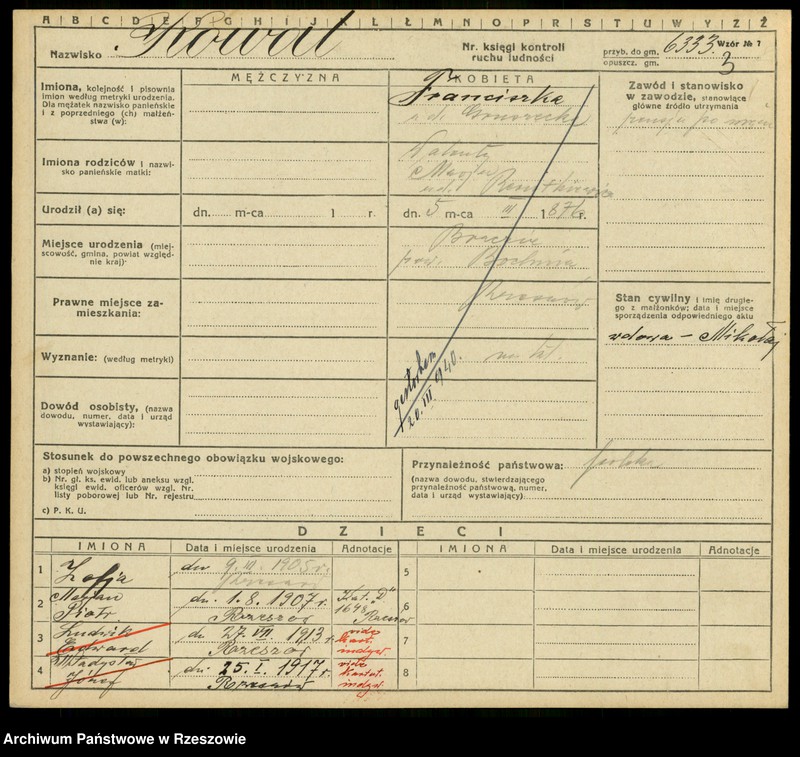 A B C D E F G H I J K L Ł M N O P R S T U W Y Z Ź
Nazwisko Kowal
Nr. księgi kontroli ruchu ludności
przyb. do gm. 6333.
opuszcz. gm. 3
Wzór № 7
MĘŻCZYZNA
KOBIETA
Imiona, kolejność i pisownia
imion według metryki urodzenia.
Dla mężatek nazwisko panieńskie
i z poprzedniego (ch) małżeń-
stwa (w):
Franciszka
z d.
Zawód i stanowisko
w zawodzie, stanowiące
główne źródło utrzymania
pensja po mężu
Imiona rodziców i nazwi-
sko panieńskie matki:
Walenty
Marja
Urodził (a) się:
dn. m-ca 1 r.
dn. 5 m-ca III 1876 r.
Miejsce urodzenia (miej-
scowość, gmina, powiat względ-
nie kraj)
pow. Bochnia
Prawne miejsce za-
mieszkania:
Rzeszów
Stan cywilny i imię drugie-
go z małżonków; data i miejsce
sporządzenia odpowiedniego aktu
wdowa – Mikołaj
Wyznanie: (według metryki)
rzk. kat.
gestorben
20. III. 1940.
Dowód osobisty, (nazwa
dowodu, numer, data i urząd
wystawiający):
Stosunek do powszechnego obowiązku wojskowego:
a) stopień wojskowy
b) Nr. gł. ks. ewid. lub aneksu wzgl.
księgi ewid. oficerów wzgl. Nr.
listy poborowej lub Nr. rejestru
c) P. K. U.
Przynależność państwowa: polska
(nazwa dowodu, stwierdzającego
przynależność państwową, numer,
data i urząd wystawiający)
DZIECI
IMIONA Data i miejsce urodzenia Adnotacje IMIONA Data i miejsce urodzenia Adnotacje
1 Zofja dn 9. III. 1905 r. 5
Rzeszów
2 Marjan Piotr dn. 1. 8. 1907 r. Rzeszów Kat. "D" 1648 Rzeszów 6
3 Ludwik Edward dn. 27. VII 1913 r. Rzeszów vide kart. indyw. 7
4 Władysław Józef dn. 25. I. 1917 r. Rzeszów vide kartot. indyw. 8
Archiwum Państwowe w Rzeszowie